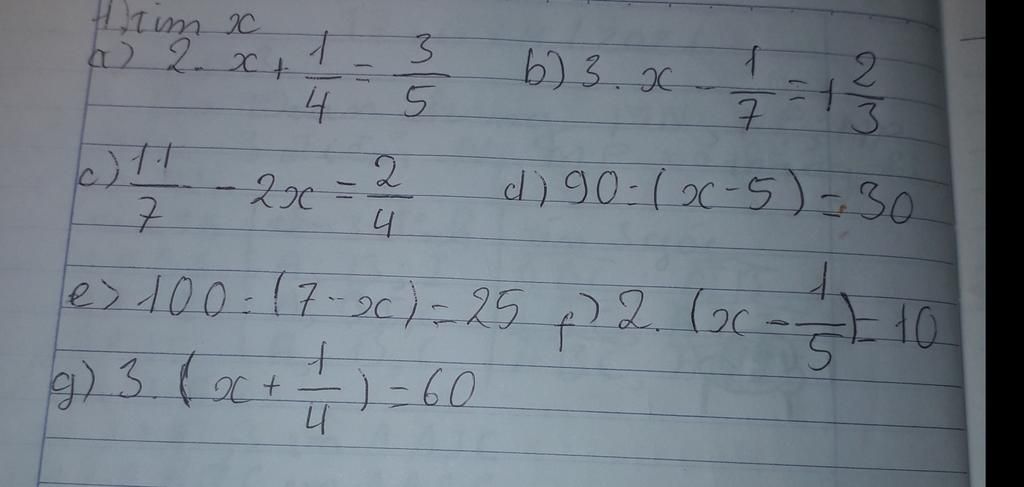 H) tìm x
a) 2. x + 1/4 = 3/5 b) 3. x - 1/7 = 1 2/3
c) 11/7 - 2x = 2/4 d) 90 : (x - 5) = 30
e) 100 : (7 - x) = 25 f) 2. (x - 1/5) = 10
g) 3. (x + 1/4) = 60